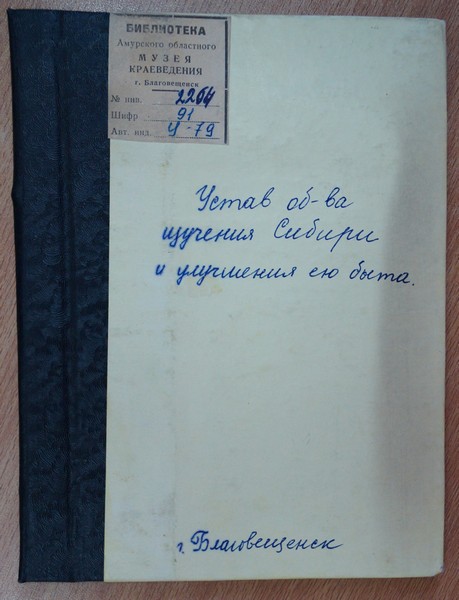 БИБЛИОТЕКА
Амурского областного
МУЗЕЯ
КРАЕВЕДЕНИЯ
г. Благовещенск
№ инв. 2264
Шифр 91
Авт. инд. У-79
Устав об-ва
изучения Сибири
и улучшения ею быта.
г. Благовещенск